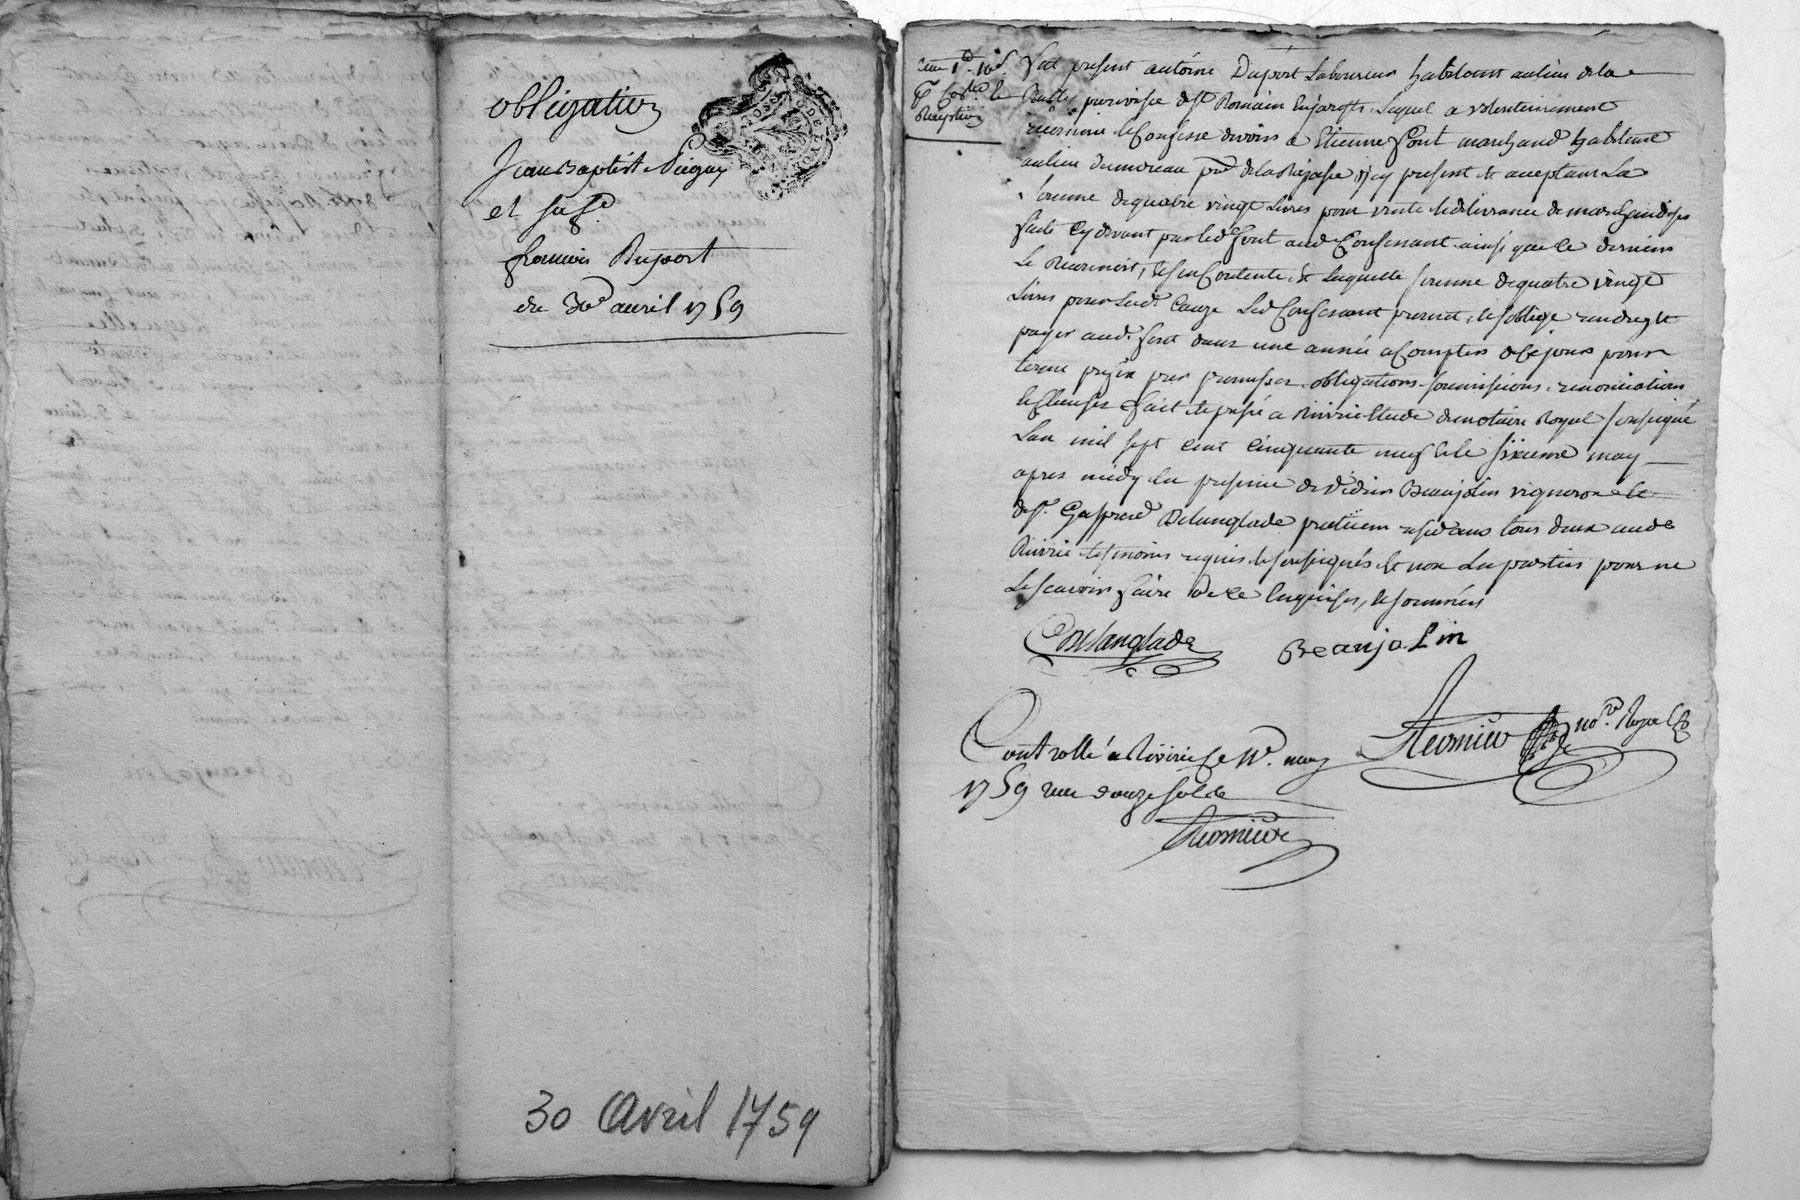 obligation
Jean Baptist
et sa fe
francois Duport
du 30e avril 1759
30 Avril 1759
fut présent antoine Duport Laboureur habitant au lieu de la
paroisse de st Romain en jarests Lequel a volontairement
reconnu & Confessé devoir a Etienne font marchand habitant
au lieu pse de la Rajasse icy present & acceptant La
somme de quatre vingt Livres pour vente & delivrance de marchandises
faite Cy devant par led. font aud. Confessant ainsi que ce dernier
Le Reconnoit, & sen Contente, & Laquelle somme de quatre vingt
Livres pour lad. Cauze Led. Confessant promet, & soblige rendre &
payer aud. font dans une année a Compter de Ce jour pour
terme prefix par promesses obligations soumissions renonciations
& Clauses fait & passé a Rivirie Etude du notaire Royal soussigné
Lan mil sept cent cinquante neuf & le sixieme may
apres midy en presence de Beaujolin vigneron &
de sr. Gasprard Delanglade praticien residans tous deux aud.
Rivirie temoins requis & soussignés & non Les parties pour ne
Le scavoir faire de ce Enquises, & sommées
Delanglade Beaujolin
no.re Royal
Controllé a Rivirie Le 11e. may
1759 reçu douze sols